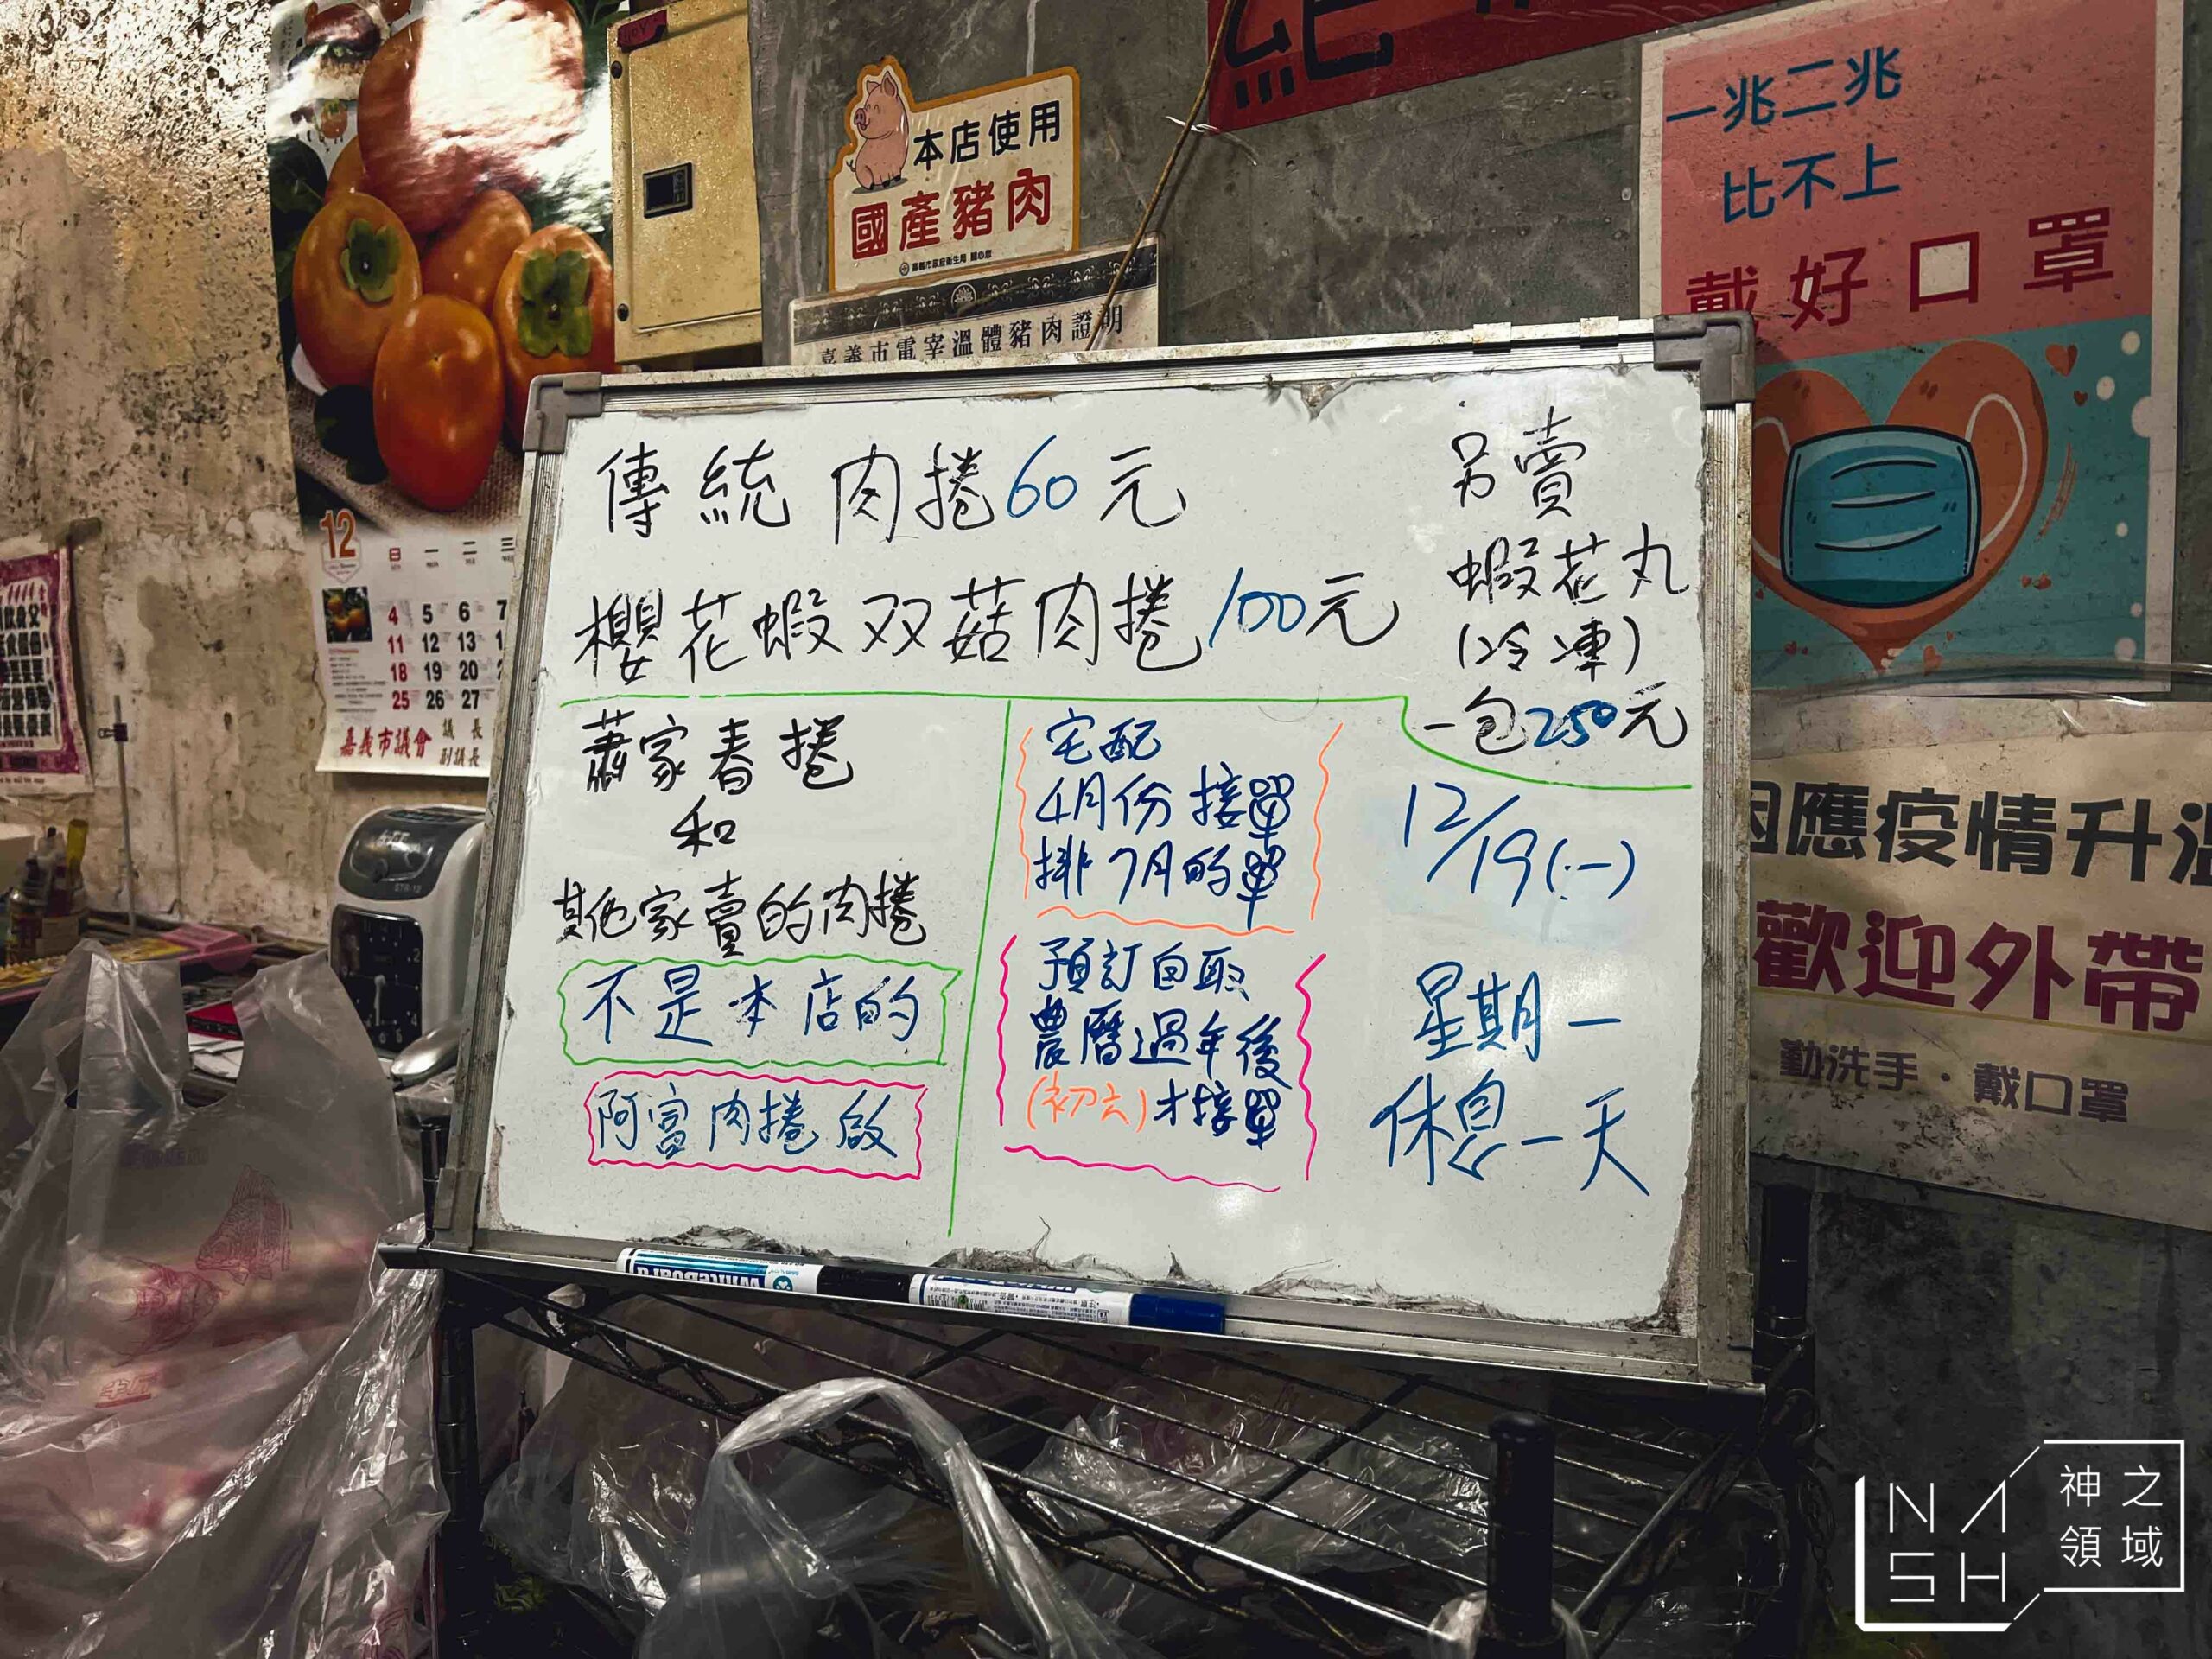 本店使用
國產豬肉
嘉義市政府衛生局 關心您
嘉義市電宰溫體豬肉證明
一兆二兆
比不上
戴好口罩
傳統肉捲60元
櫻花蝦双菇肉捲100元
另賣
蝦花丸
(冷凍)
一包250元
蕭家春捲
和
其他家賣的肉捲
不是本店的
阿富肉捲 啟
宅配
4月份接單
排7月的單
預訂自取
農曆過年後
(初六)才接單
12/19(一)
星期一
休息一天
12 日 一 二 三
4 5 6 7
11 12 13
18 19 20
25 26 27
嘉義市議會
議長
副議長
因應疫情升溫
歡迎外帶
勤洗手·戴口罩
Whiteboard
NASH
神之
領域